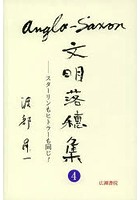 Anglo-Saxon
文明落穂集
④
——スターリンもヒトラーも同じ!
渡部昇一
広瀬書院